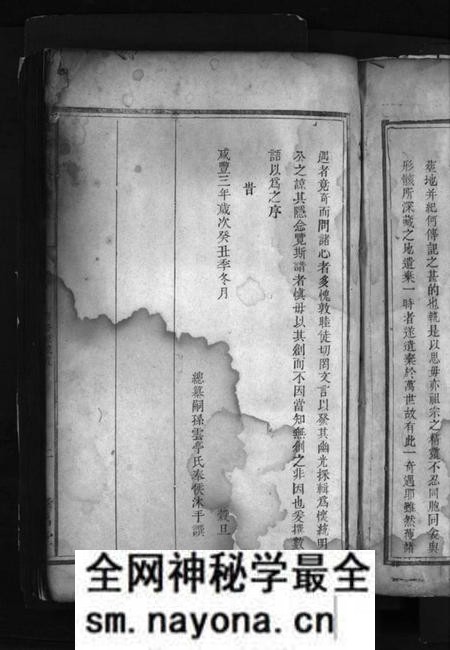 塋地并紀何傳記之甚的也軌是以思毋亦祖宗之精靈不忍同胞同衾與
形骸所深藏之地遺棄一時者遂遺棄於萬世故有此一奇遇耶雖然荷諸
遇者竟奇而問諸心者多愧敦睦徒切罔文言以發其幽光採輯為懷統明
公之諒其隱念覽斯譜者慎毋以其創而不因當知無創之非因也爰撰數
語以為之序
旹
咸豐三年歲次癸丑季冬月
穀旦
總纂嗣孫雲亭氏奉候沐手譔
全网神秘学最全
sm.nayona.cn